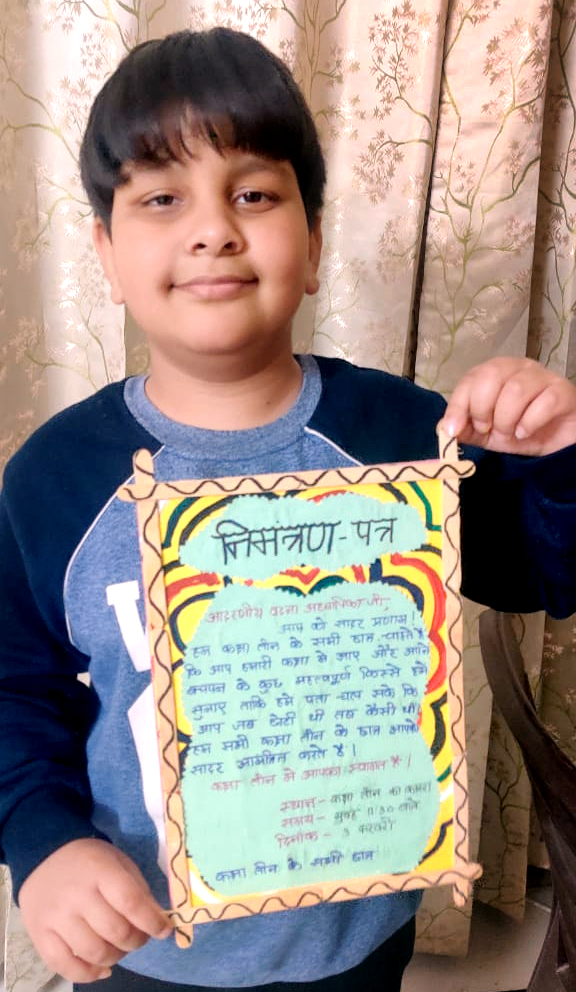 निमंत्रण-पत्र
आदरणीय वंदना अध्यापिका जी,
आप को सादर प्रणाम!
हम कक्षा तीन के सभी छात्र चाहते है
कि आप हमारी कक्षा मे आए और अपने
बचपन के कुछ महत्वपूर्ण किस्से हमे
सुनाए ताकि हमे पता चल सके कि
आप जब छोटी थी तब कैसी थी।
हम सभी कक्षा तीन के छात्र आपको
सादर आमंत्रित करते है।
कक्षा तीन मे आपका स्वागत है।
स्थान - कक्षा तीन का कमरा
समय - सुबह 11:30 बजे
दिनांक - 3 फरवरी
कक्षा तीन के सभी छात्र